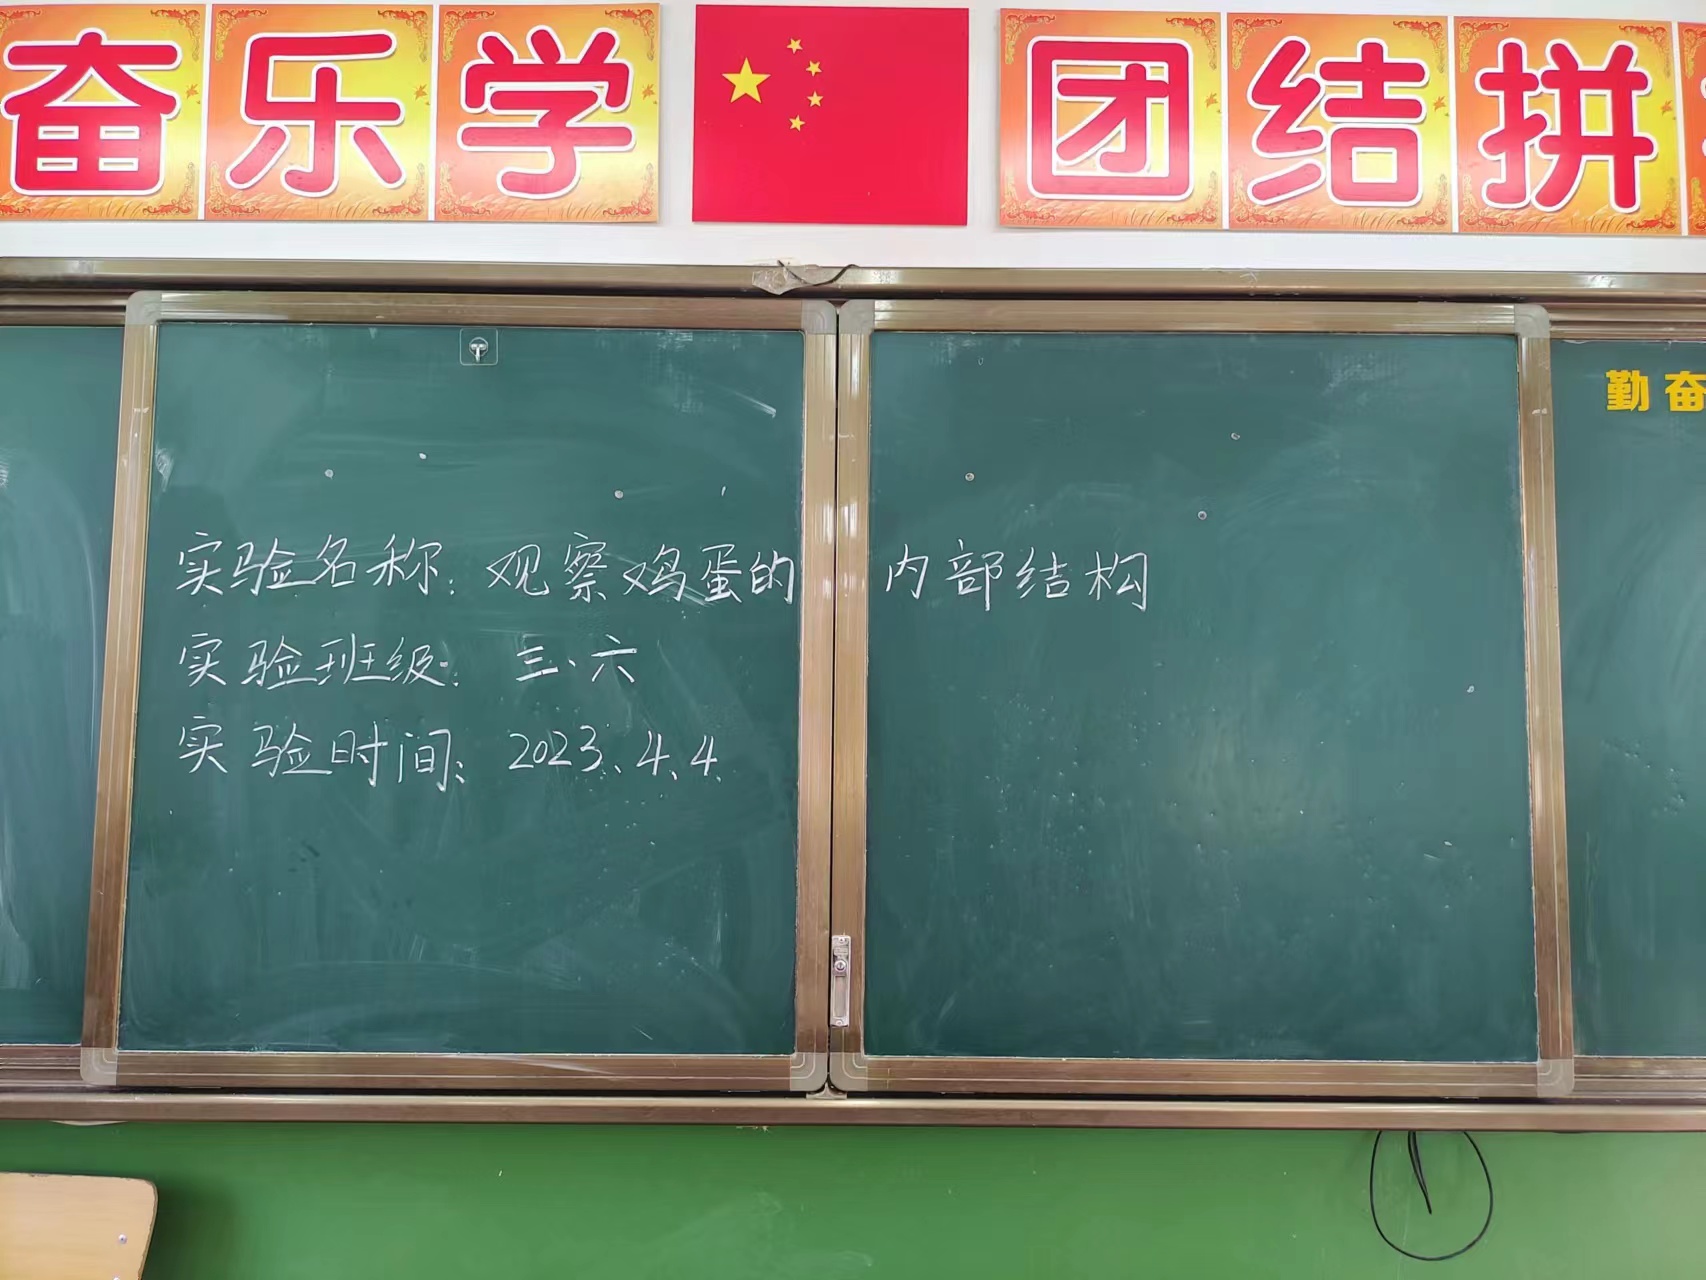 奋乐学 团结拼
勤奋
实验名称：观察鸡蛋的内部结构
实验班级：三、六
实验时间：2023、4、4